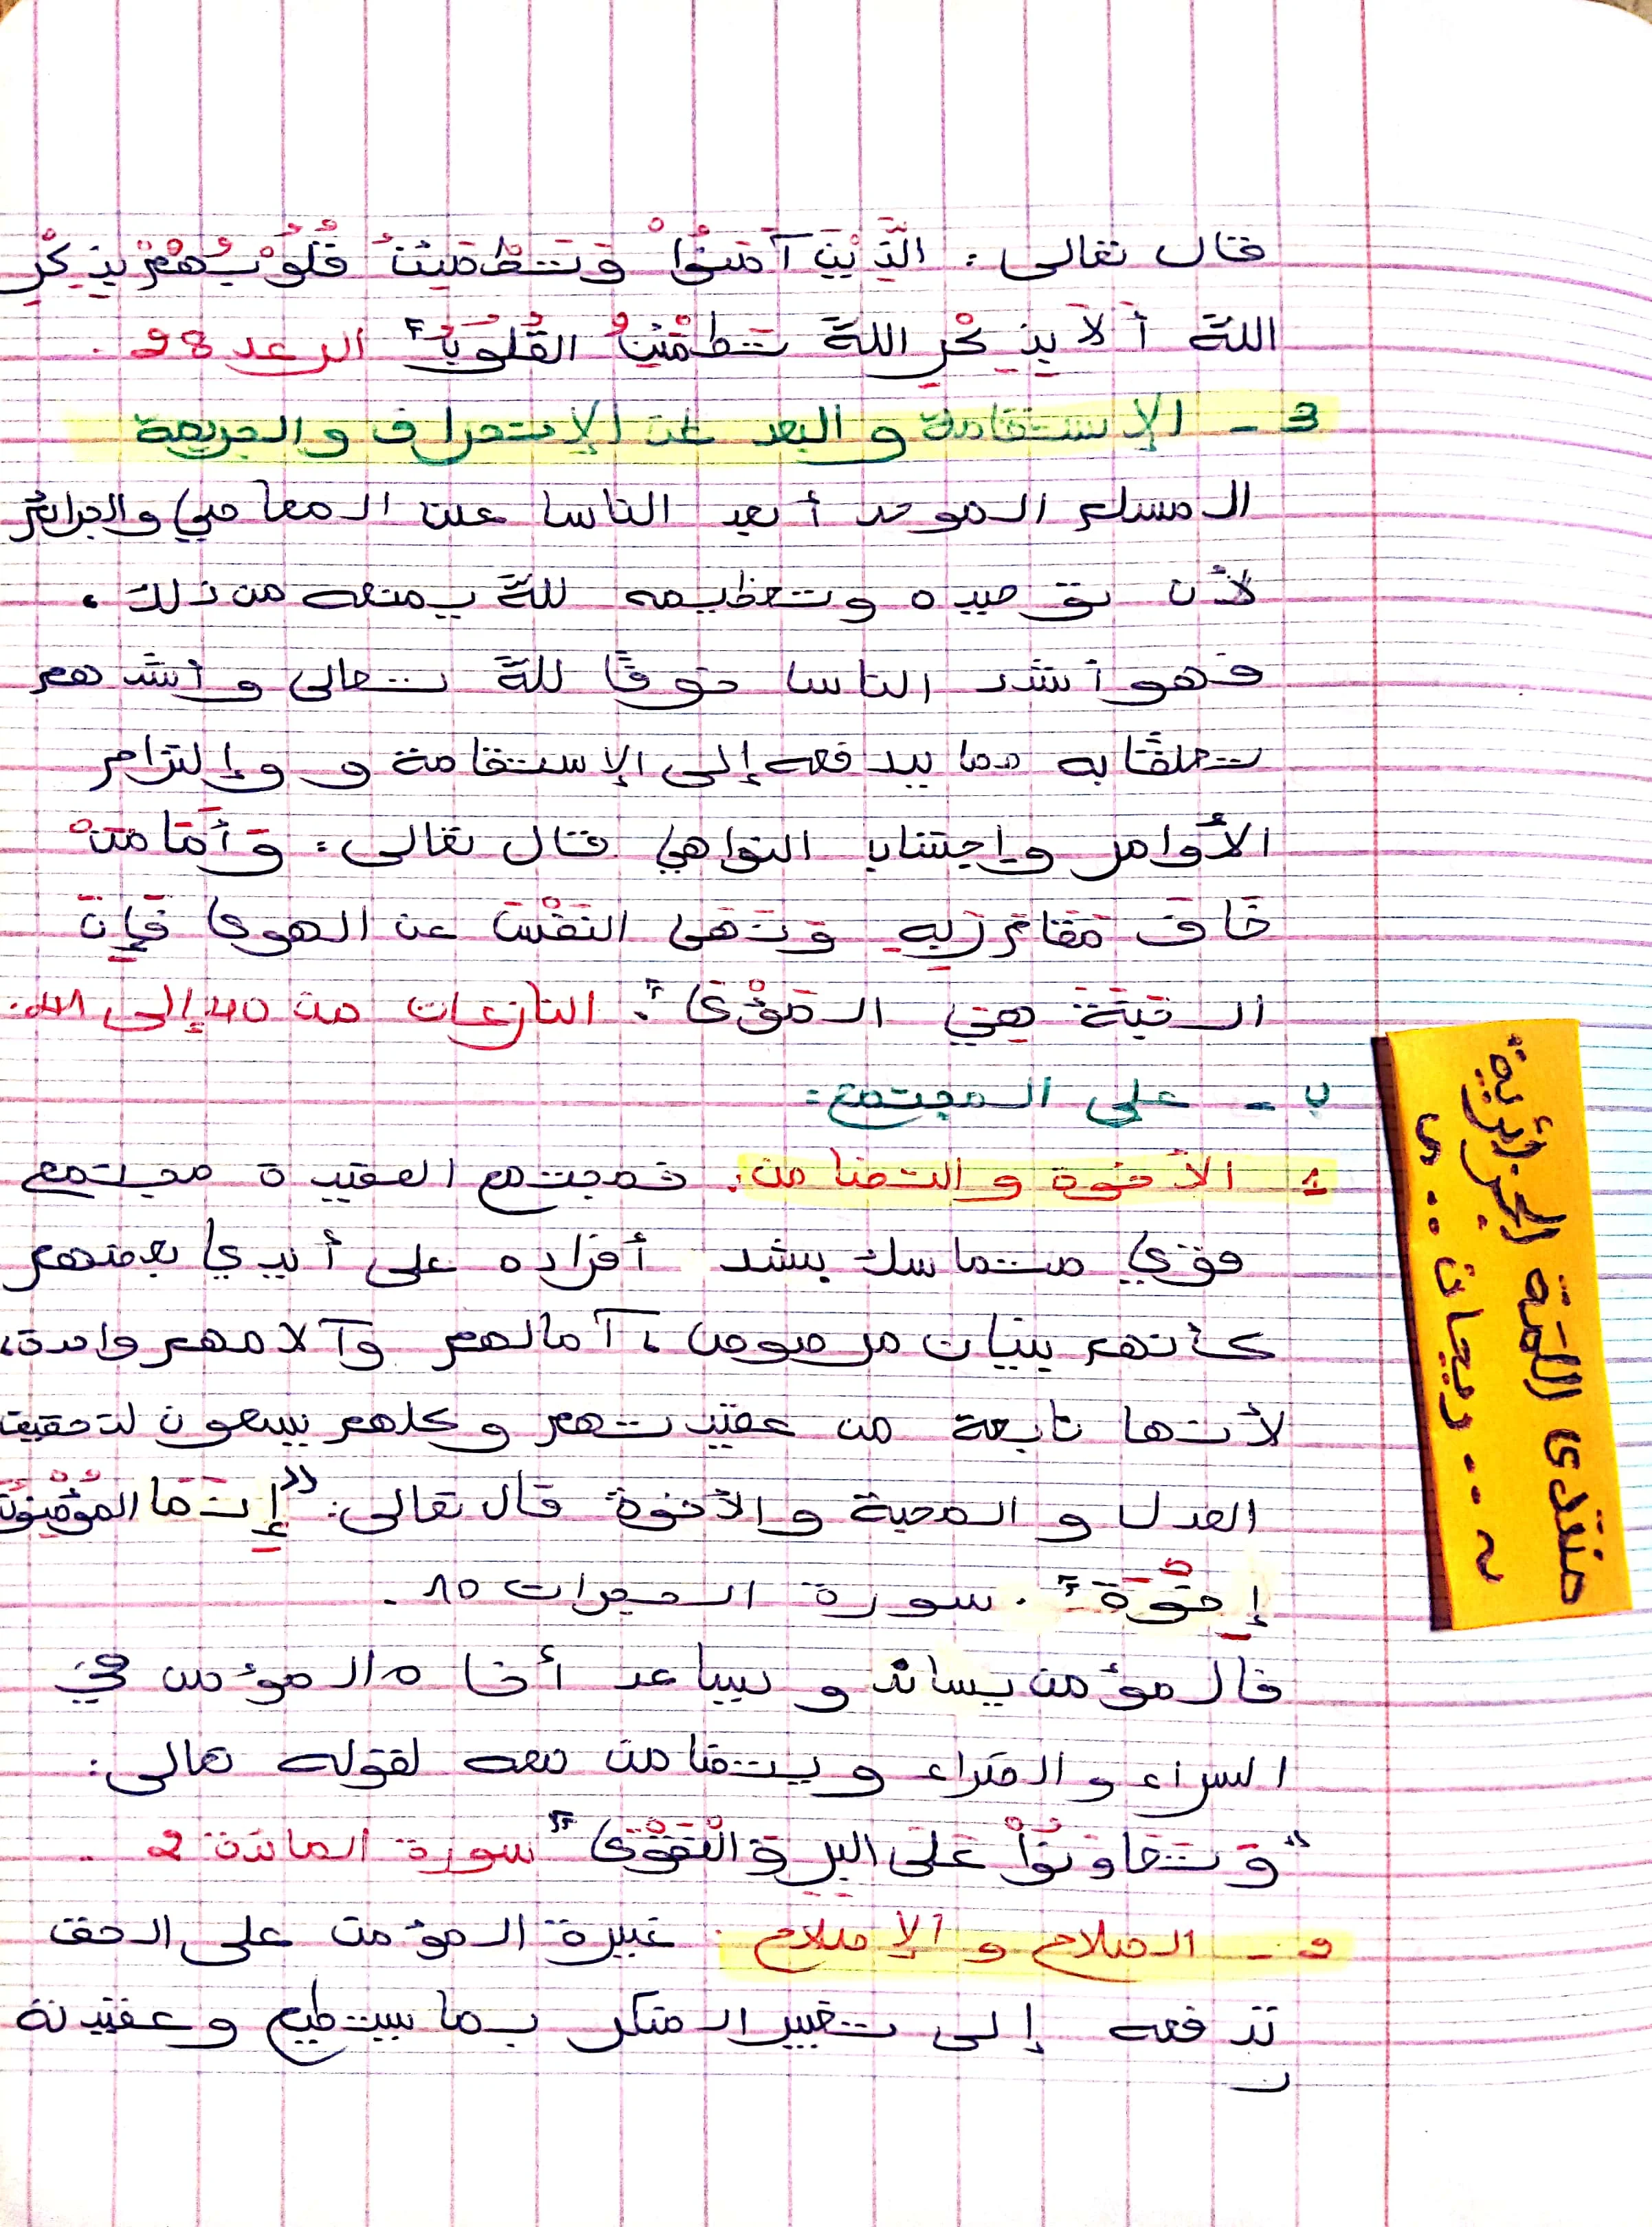 قال تعالى : الَّذِيْنَ آمَنُوْا وَتَطْمَئِنُّ قُلُوْبُهُمْ بِذِكْرِ
اللهَّ أَلاَ بِذِكْرِ اللهَّ تَطْمَئِنُ القُلُوْبُ" الرعد 28 .
3 - الإستقامة و البعد عن الإنحراف والجريمة
المسلم الموحد أبعد الناس عن المعاصي والجرائم
لأن توحيده وتعظيمه للهَّ يمنعه من ذلك ،
فهو أشد الناس خوفًا للهَّ تعالى و أشدهم
تعلقًا به مما يدفعه إلى الإستقامة و وإلتزام
الأوامر وإجتناب النواهي قال تعالى : وَأَمَا مَنْ
خَافَ مَقَامَ رَبِهِ وَنَهَى النَفْسَ عن الهوى فَإِنَ
الجَنَةَ هِيَ المَأْوَى" . النازعات من 40 إلى 41 .
ب - على المجتمع :
1 - الأخوة و التضامن . فمجتمع العقيدة مجتمع
قوي متماسك يشد أفراده على أيدي بعضهم
كأنهم بنيان مرصوص ، آمالهم وآلامهم واحدة ،
لأنها نابعة من عقيدتهم و كلهم يسعون لتحقيق
العدل و المحبة و الأخوة قال تعالى : "إِنَمَا المُؤْمِنُوْنَ
إِخْوَة" . سورة الحجرات 10 .
فالمؤمن يساند و يساعد أخاه المؤمن في
السراء و الضراء و يتضامن معه لقوله تعالى :
"وَتَعَاوَنُوْا عَلَى البِرِ وَالْتَقْوَى" سورة المائدة 2 .
2 - الصلاح و الإصلاح . غيرة المؤمن على الحق
تدفعه إلى تغيير المنكر بما يستطيع و عقيدته
منتدى اللمة الجزائرية
~ .. ريحان .. ي